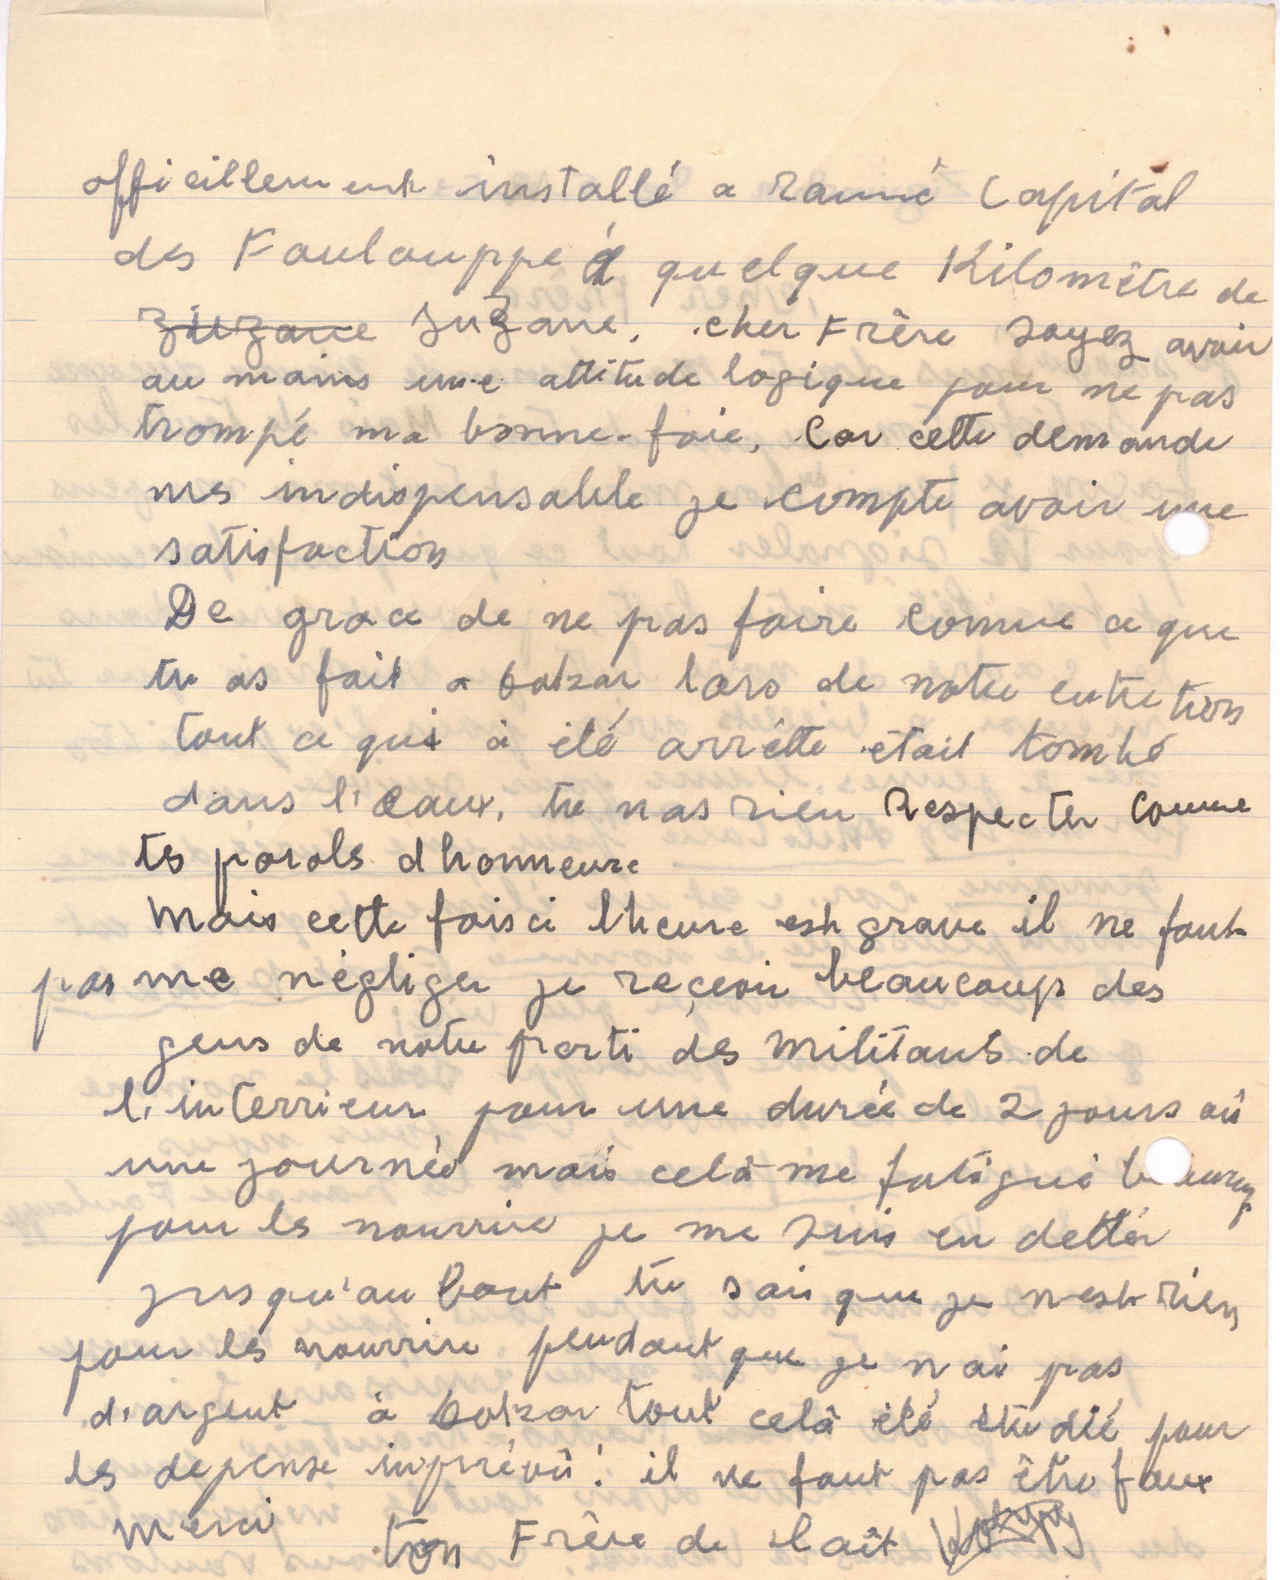 officillement installé a ramé Capital
des Foulouppe à quelque Kilomètre de
zuzane Suzane, cher Frère soyez avoir
au moins une attitude logique pour ne pas
trompé ma bonne-foie, Car cette demande
mes indispensable je compte avoir une
satisfaction
De grace de ne pas faire comme ce que
tu as fait a dakar lors de notre entretien
tout ce qui à été arrétte était tombé
dans l'eaux, tu nas rien Respecter comme
tes parols dhonneure
Mais cette foisci lheure est grave il ne faut
pas me négliger je reçeoir beaucoup des
gens de notre parti des militants de
l'interrieur pour une durée de 2 jours où
une journéé mais celà me fatigué
pour les nourrire je me suis en detter
jusqu'au bout tu sais que je nest rien
pour les nourrire pendant que je n ai pas
d'argent à dakar tout celà été étudié pour
les depense imprévû! il ne faut pas être faux
Merci ton Frère de lait